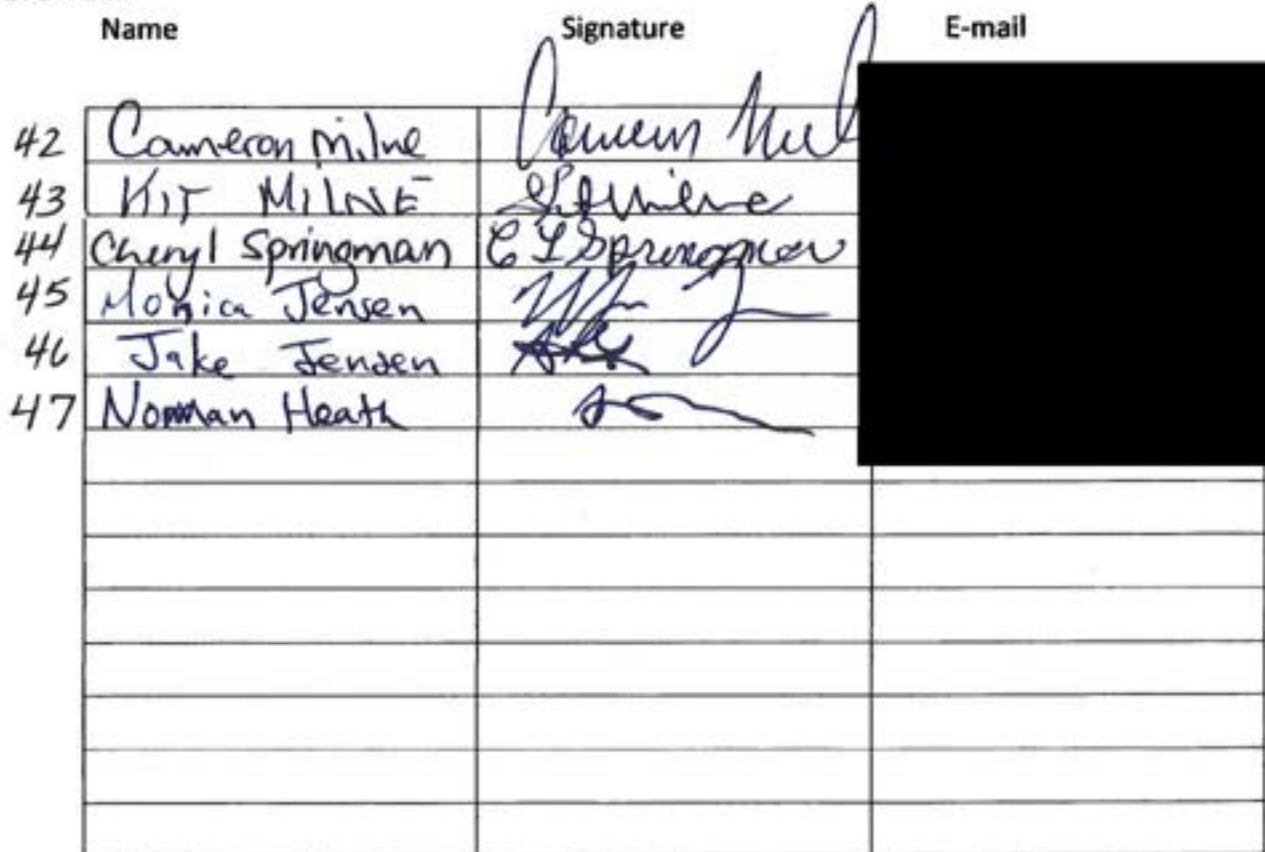 Name Signature E-mail
42 Cameron Milne Cameron Mil
43 KIT MILNE
44 Cheryl Springman C L Springman
45 Monica Jensen
46 Jake Jensen
47 Norman Heath